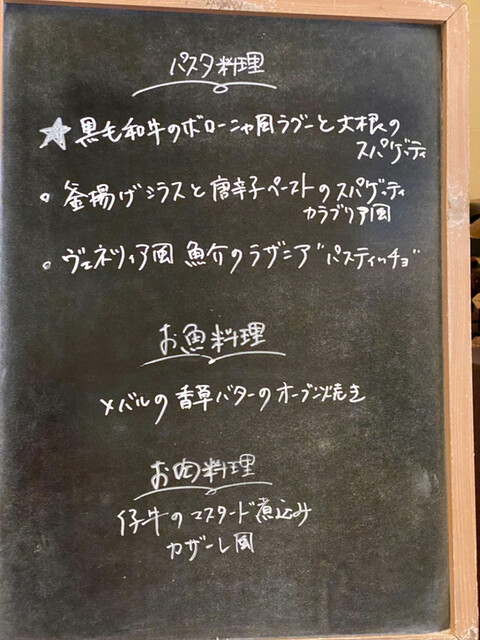 パスタ料理
★黒毛和牛のボローニャ風ラグーと大根の
スパゲッティ
○ 釜揚げシラスと唐辛子ペーストのスパゲッティ
カラブリア風
○ ヴェネツィア風 魚介のラザニア"パスティッチョ"
お魚料理
メバルの香草バターのオーブン焼き
お肉料理
仔牛のマスタード煮込み
カザーレ風